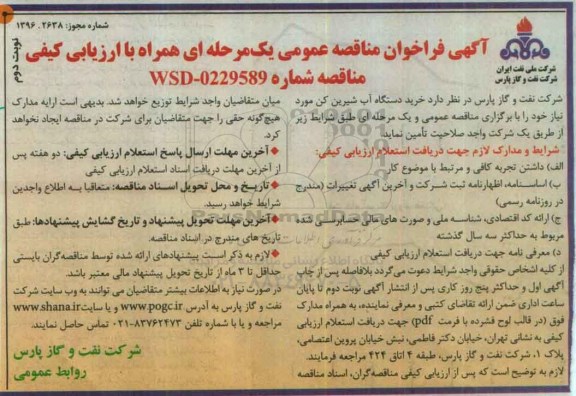 شماره مجوز: ۲۶۳۸. ۱۳۹۶
نوبت دوم
شرکت ملی نفت ایران
شرکت نفت و گاز پارس
آگهی فراخوان مناقصه عمومی یک‌مرحله ای همراه با ارزیابی کیفی
مناقصه شماره WSD-0229589
شرکت نفت و گاز پارس در نظر دارد خرید دستگاه آب شیرین کن مورد
نیاز خود را با برگزاری مناقصه عمومی و یک مرحله ای طبق شرایط زیر
از طریق یک شرکت واجد صلاحیت تأمین نماید.
شرایط و مدارک لازم جهت دریافت استعلام ارزیابی کیفی:
الف) داشتن تجربه کافی و مرتبط با موضوع کار
ب) اساسنامه، اظهارنامه ثبت شرکت و آخرین آگهی تغییرات (مندرج
در روزنامه رسمی)
ج) ارائه کد اقتصادی، شناسه ملی و صورت های مالی حسابرسی شده
مربوط به حداکثر سه سال گذشته
د) معرفی نامه جهت دریافت استعلام ارزیابی کیفی
از کلیه اشخاص حقوقی واجد شرایط دعوت می‌گردد بلافاصله پس از چاپ
آگهی اول و حداکثر پنج روز کاری پس از انتشار آگهی نوبت دوم تا پایان
ساعت اداری ضمن ارائه تقاضای کتبی و معرفی نماینده، به همراه مدارک
فوق (در قالب لوح فشرده با فرمت pdf) جهت دریافت استعلام ارزیابی
کیفی به نشانی تهران، خیابان دکتر فاطمی، نبش خیابان پروین اعتصامی،
پلاک ۱، شرکت نفت و گاز پارس، طبقه ۴ اتاق ۴۲۴ مراجعه فرمایند.
لازم به توضیح است که پس از ارزیابی کیفی مناقصه‌گران، اسناد مناقصه
میان متقاضیان واجد شرایط توزیع خواهد شد. بدیهی است ارایه مدارک
هیچ‌گونه حقی را جهت متقاضیان برای شرکت در مناقصه ایجاد نخواهد
کرد.
◆آخرین مهلت ارسال پاسخ استعلام ارزیابی کیفی: دو هفته پس
از آخرین مهلت دریافت اسناد استعلام ارزیابی کیفی
◆تاریخ و محل تحویل اسناد مناقصه: متعاقبا به اطلاع واجدین
شرایط خواهد رسید.
◆آخرین مهلت تحویل پیشنهاد و تاریخ گشایش پیشنهادها: طبق
تاریخ های مندرج در اسناد مناقصه.
◆لازم به ذکر است پیشنهادهای ارائه شده توسط مناقصه‌گران بایستی
حداقل تا ۳ ماه از تاریخ تحویل پیشنهاد مالی معتبر باشد.
در صورت نیاز به اطلاعات بیشتر متقاضیان می توانند به وب سایت شرکت
نفت و گاز پارس به آدرس www.pogc.ir و یا سایت www.shana.ir
مراجعه و یا با شماره تلفن ۸۳۷۶۲۴۷۳-۰۲۱ تماس حاصل نمایند.
شرکت نفت و گاز پارس
روابط عمومی